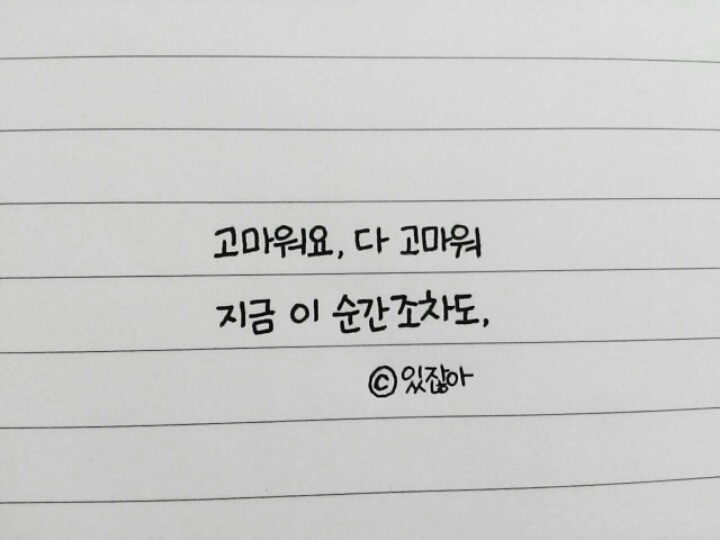 고마워요, 다 고마워
지금 이 순간조차도,
©있잖아